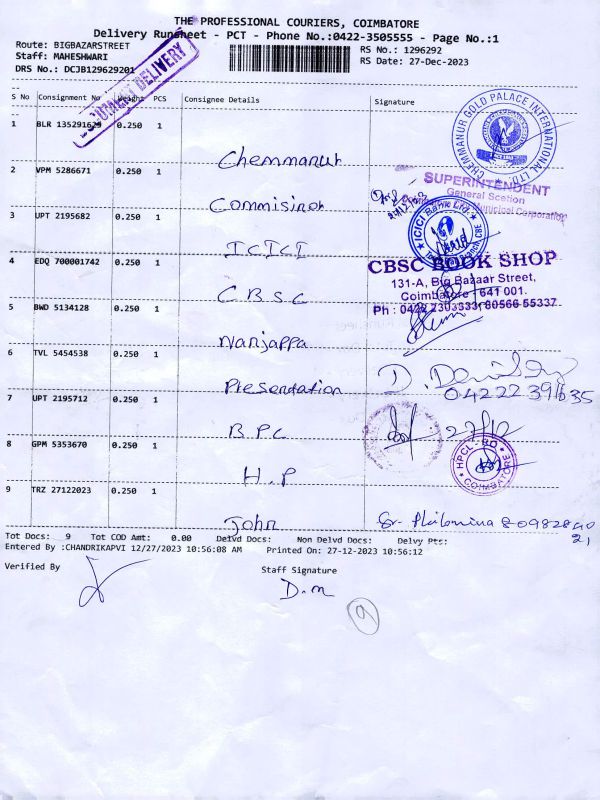 THE PROFESSIONAL COURIERS, COIMBATORE
Delivery Runsheet - PCT - Phone No.:0422-3505555 - Page No.:1
Route: BIGBAZARSTREET
RS No.: 1296292
Staff: MAHESHWARI
RS Date: 27-Dec-2023
DRS No.: DCJB129629201
DELIVERY
S No Consignment No Weight PCS Consignee Details Signature
CHEMMANUR GOLD PALACE INTERNATIONAL LTD.
1 BLR 135291629 0.250 1
Chemmanur
2 VPM 5286671 0.250 1
SUPERINTENDENT
General Scetion
Municipal Corporation
Commisiner
3 UPT 2195682 0.250 1
ICICI Bank Ltd.
ICICI
4 EDQ 700001742 0.250 1
CBSC BOOK SHOP
131-A, Big Bazaar Street,
Coimbatore - 641 001.
Ph : 0422 2303333, 80566 55337
C.B.S.C
5 BWD 5134128 0.250 1
Nanjappa
6 TVL 5454538 0.250 1
Presentation
7 UPT 2195712 0.250 1
27/12
B.P.C
8 GPM 5353670 0.250 1
HPCL-RO
COIMBATORE
H.P
9 TRZ 27122023 0.250 1
John
Sr. Philomina
Tot Docs: 9 Tot COD Amt: 0.00 Delvd Docs: Non Delvd Docs: Delvy Pts:
Entered By :CHANDRIKAPVI 12/27/2023 10:56:08 AM Printed On: 27-12-2023 10:56:12
Verified By
Staff Signature
D.m
9